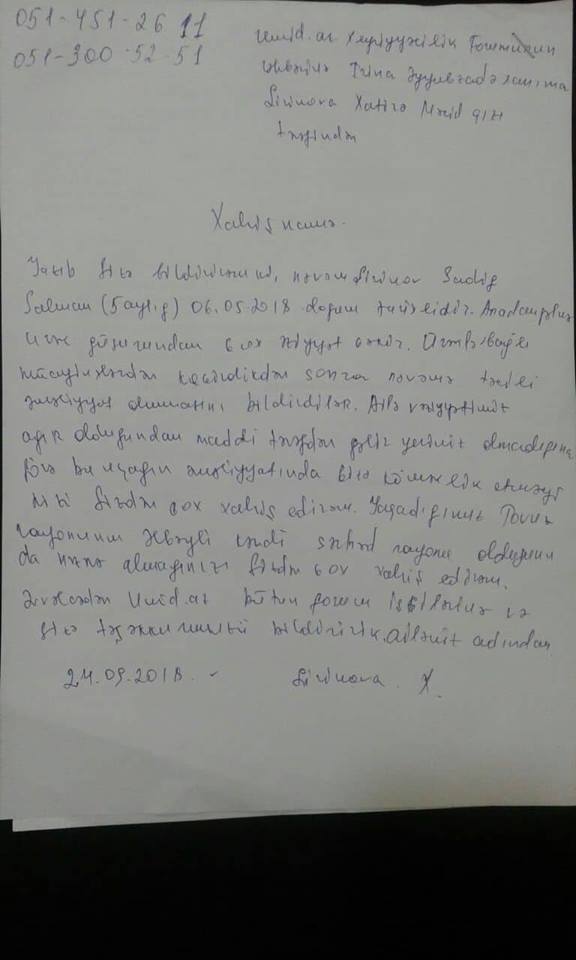 051-451-26 11
051-300-52-51
Umid.az Xeyriyyəçilik
İrina
Şirinova Xatirə Məcid qızı
tərəfindən
Xahiş namə.
Yazıb Sizə bildirirəm ki, nəvəm Şirinov Sadiq
Salman (5 aylıq) 06.05.2018 doğum tarixlidir. Anadangəlmə
ürək qüsurundan çox əziyyət çəkir.
müayinələrdən keçirdikdən sonra nəvəmə təcili
əməliyyat olunmasını bildirdilər. Ailə vəziyyətimiz
ağır olduğundan maddi tərəfdən gəlir yerimiz olmadığına
görə bu uşağın əməliyyatında bizə köməklik etməyi
nizi Sizdən çox xahiş edirəm. Yaşadığımız Tovuz
rayonunun Əlibəyli kəndi sərhəd rayonu olduğunu
da nəzərə almağınızı Sizdən çox xahiş edirəm.
Əvvəlcədən Umid.az bütün forum işçilərinə və
Sizə təşəkkürümüzü bildiririk. Ailəmiz adından
24.09.2018. Şirinova X.